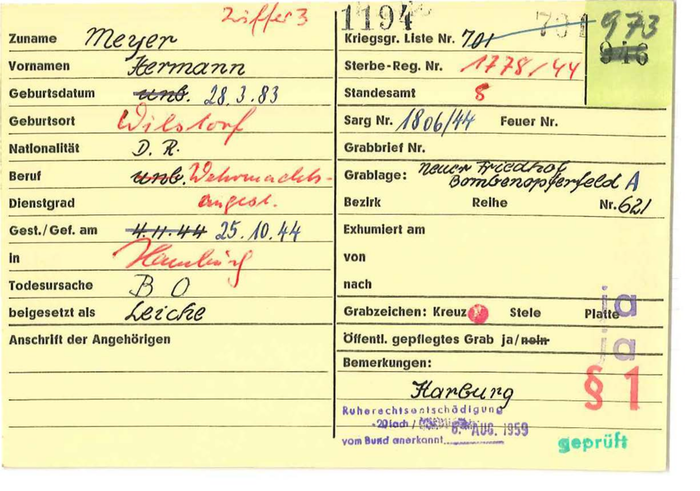 Ziffer 3
Zuname Meyer
Vornamen Hermann
Geburtsdatum unb. 28.3.83
Geburtsort Wilstorf
Nationalität D. R.
Beruf unb. Wehrmachts-
Dienstgrad angest.
Gest./Gef. am 4.11.44 25.10.44
in Hamburg
Todesursache B O
beigesetzt als Leiche
Anschrift der Angehörigen
1194 701 973
Kriegsgr. Liste Nr. 701 946
Sterbe-Reg. Nr. 1778/44
Standesamt 8
Sarg Nr. 1806/44 Feuer Nr.
Grabbrief Nr.
Grablage: Neuer Friedhof
Bombenopferfeld A
Bezirk Reihe Nr. 621
Exhumiert am
von
nach
Grabzeichen: Kreuz Stele Platte ja
Öffentl. gepflegtes Grab ja/nein ja
Bemerkungen:
Harburg
§ 1
Ruherechtsentschädigung
-20fach/
6. AUG. 1959
vom Bund anerkannt
geprüft